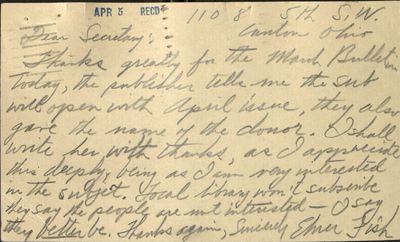 APR 5 RECD
1108 5th S.W.
Canton Ohio
Dear Secretary:
Thanks greatly for the March Bulletin
today, the publisher tells me the sub
will open with April issue, they also
gave the name of the donor. I shall
write her with thanks, as I appreciate
this deeply, being as I am very interested
in the subject. Local library won't subscribe
they say the people are not interested - I say
they better be. Thanks again, Sincerely Elmer Fish